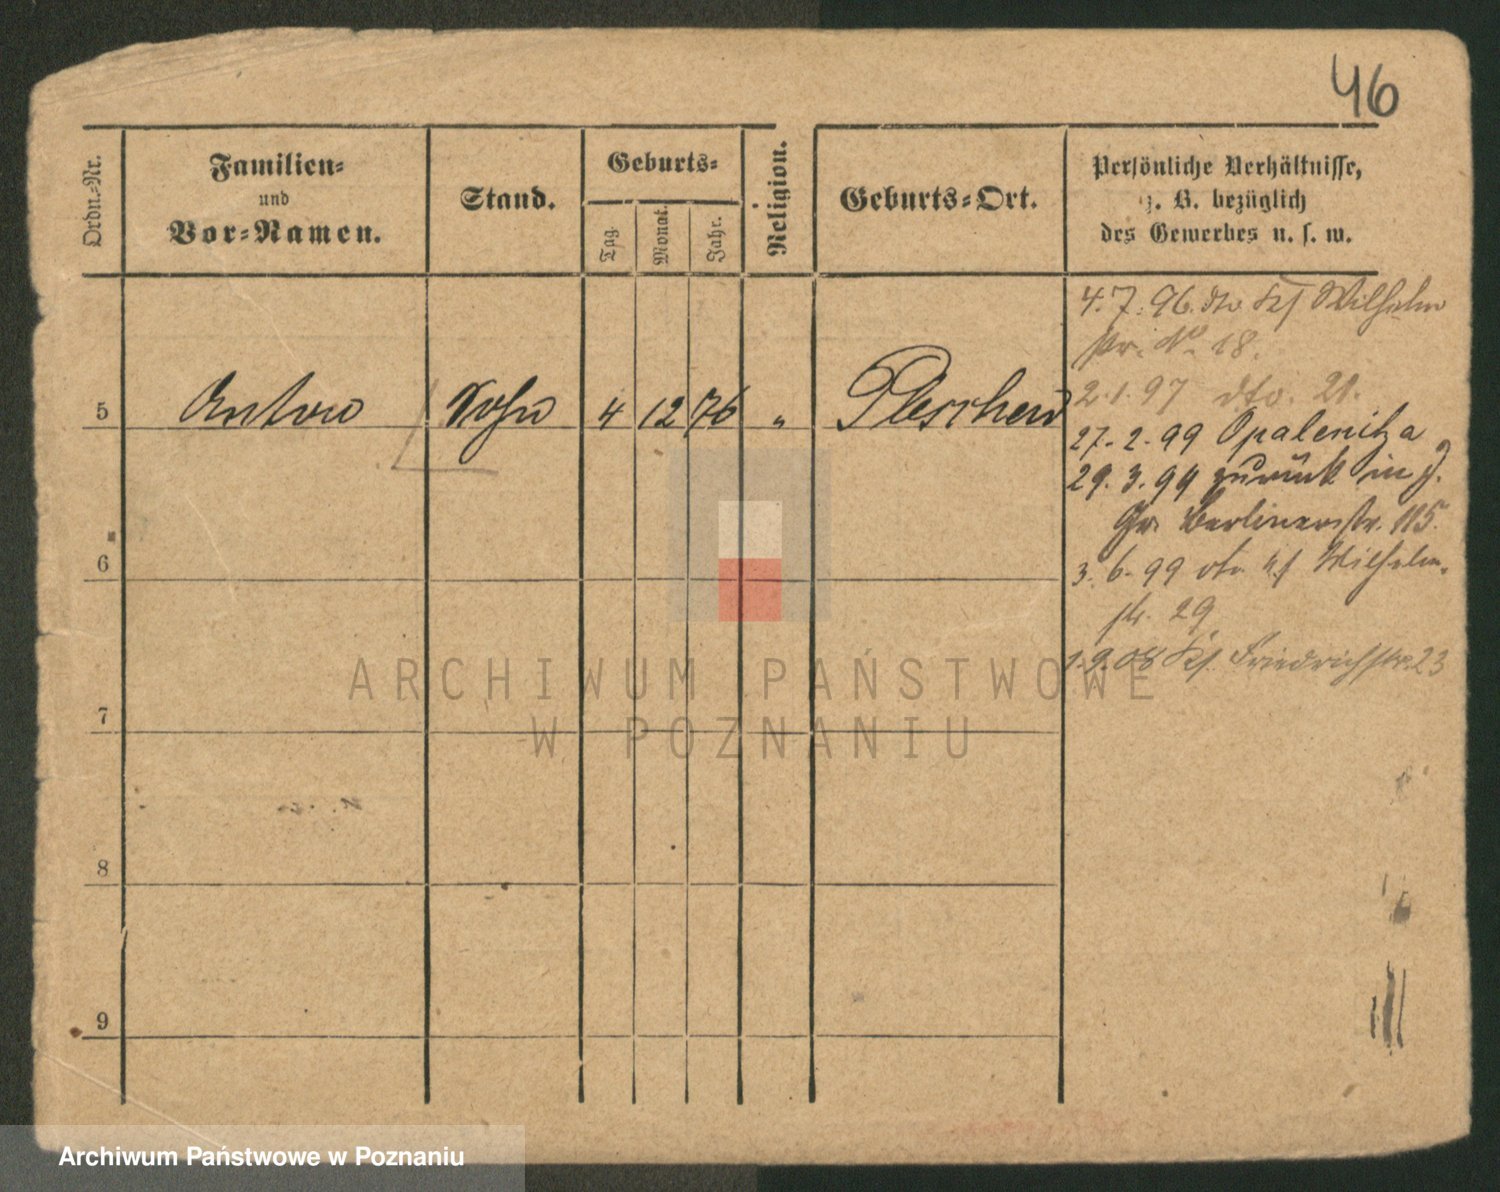 46
Ordn.-Nr.
Familien-
und
Vor-Namen.
Stand.
Geburts-
Tag.
Monat.
Jahr.
Religion.
Geburts-Ort.
Persönliche Verhältnisse,
z. B. bezüglich
des Gewerbes u. s. w.
5 Anton Sohn 4 12 76 " Pleschen
4. 7. 96. dto Wilhelm
str. No. 18.
2. 1. 97 dto. 21.
27. 2. 99 Opalenitza
29. 3. 99 zurück in J.
Gr. Berlinerstr. 115.
3. 6. 99 Wilhelm-
str. 29
1. 9. 08 Friedrichstr. 23
6
7
8
9
ARCHIWUM PAŃSTWOWE
W POZNANIU
Archiwum Państwowe w Poznaniu